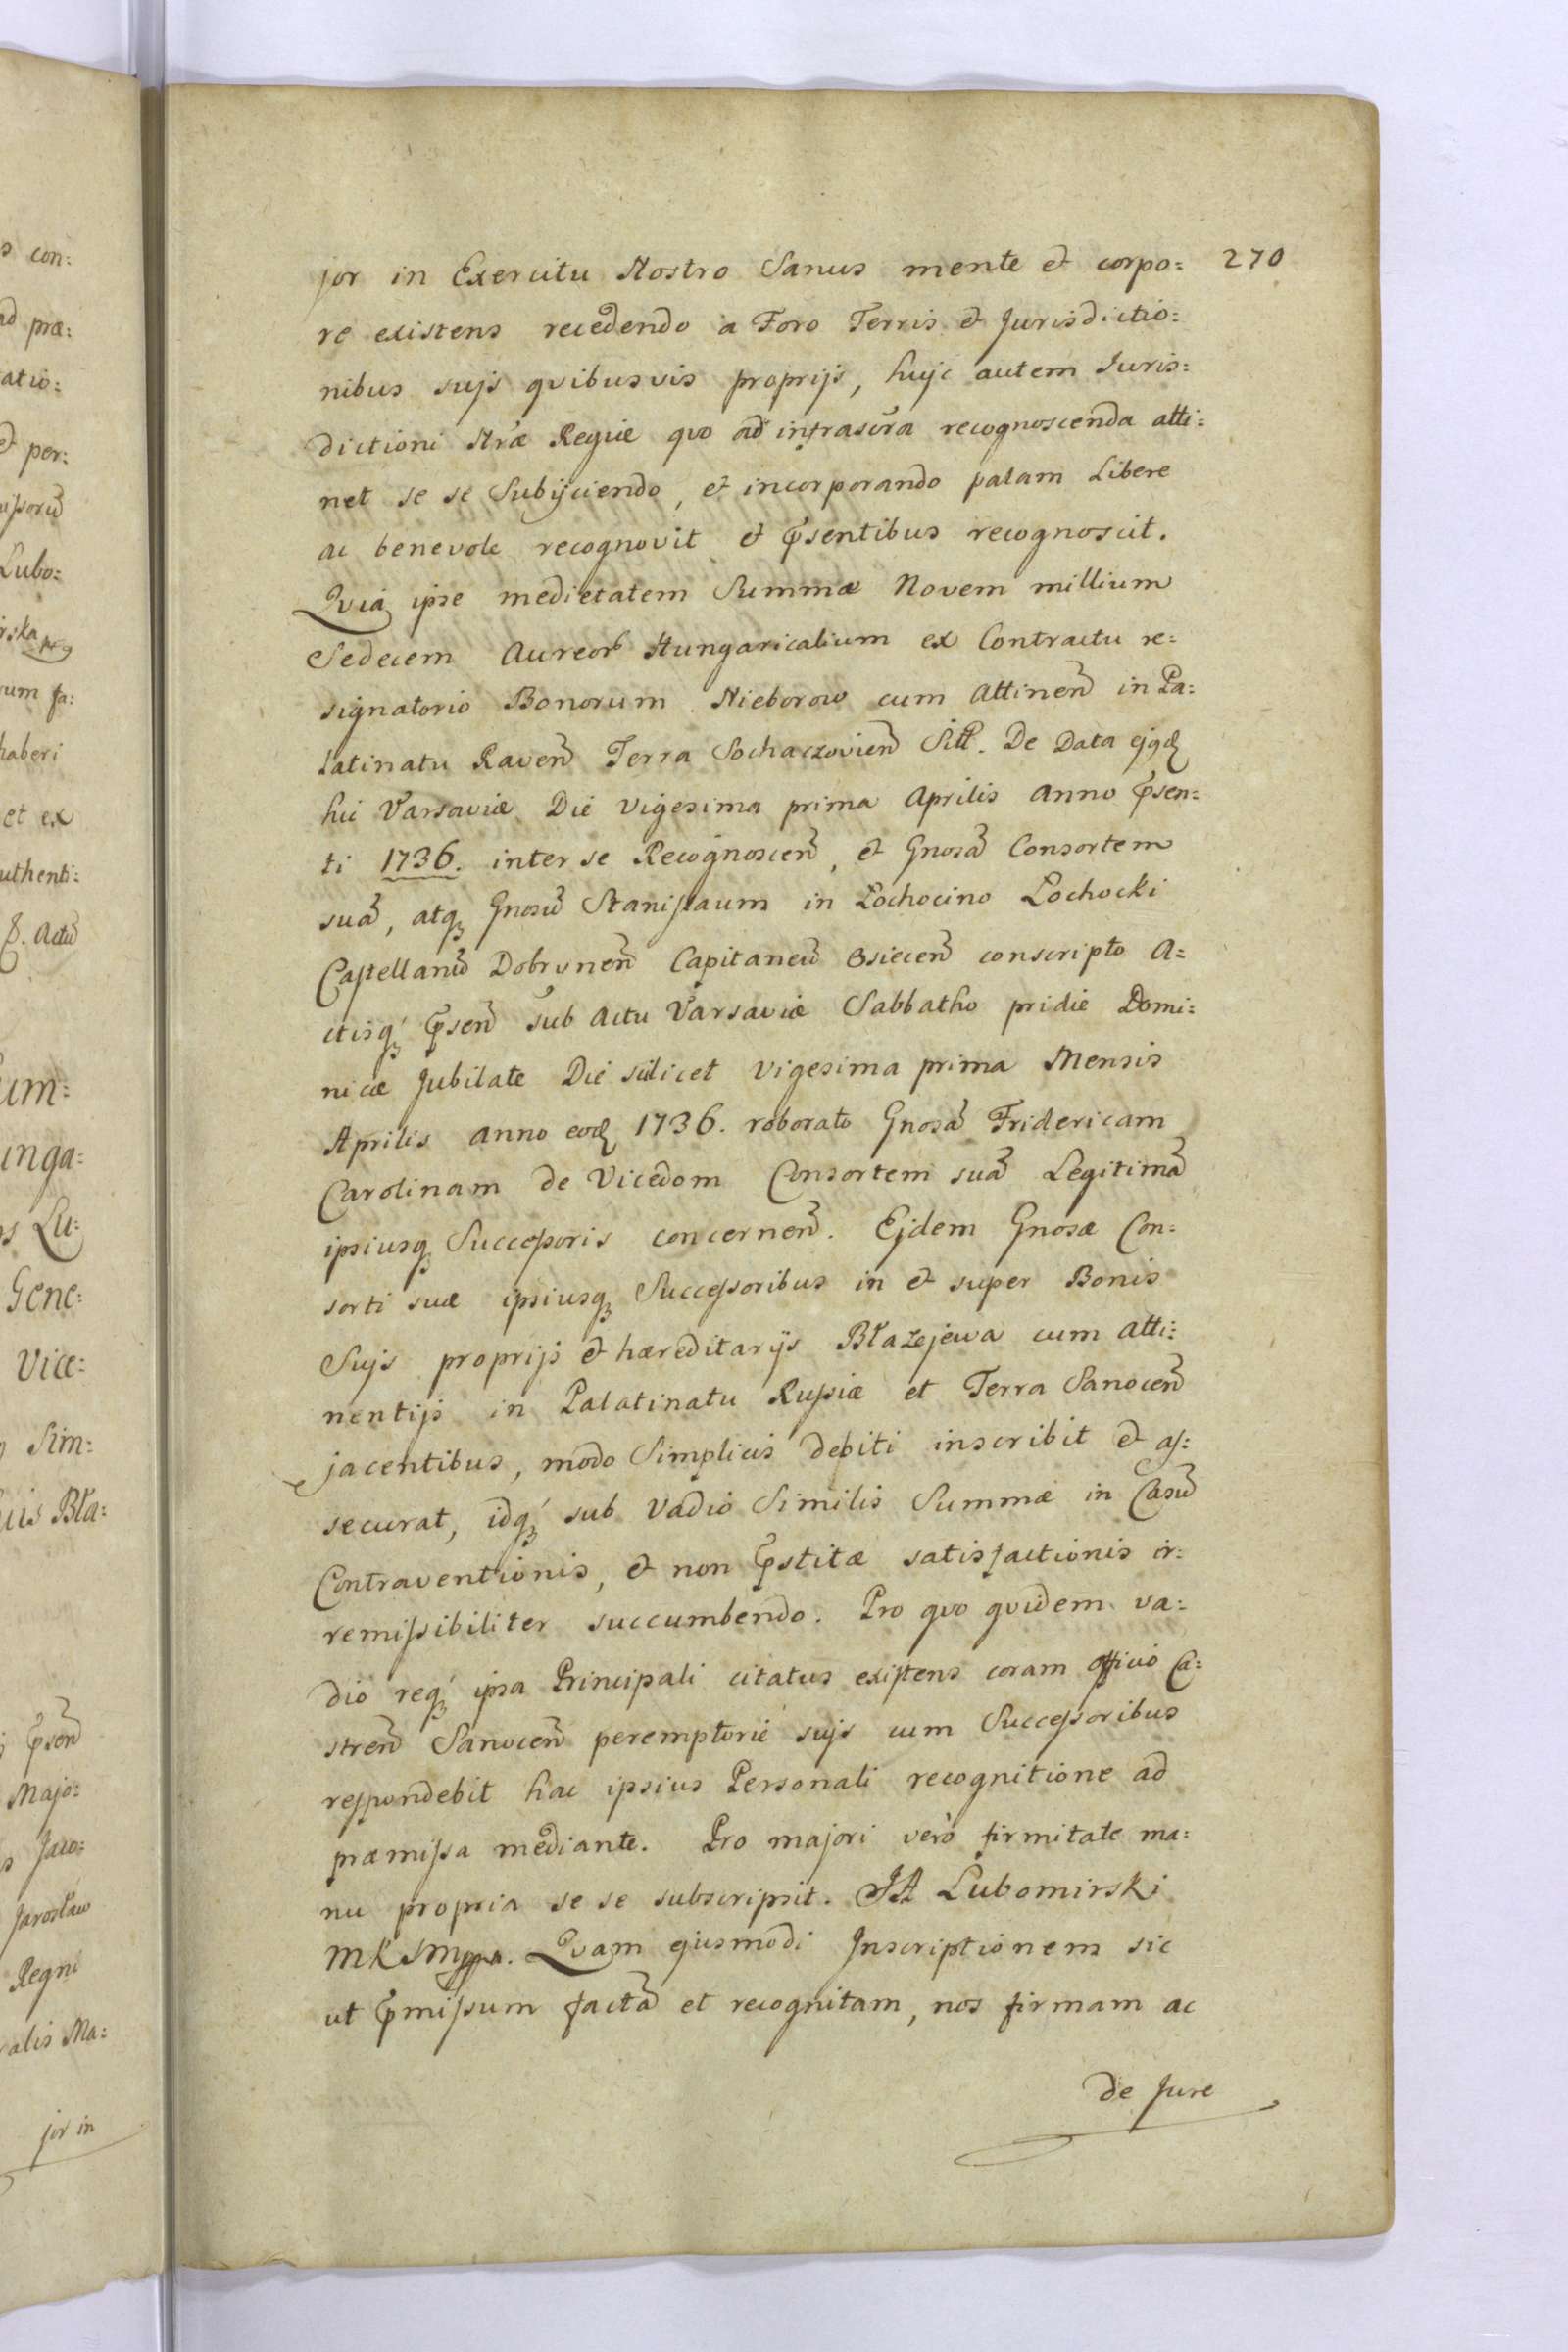 s con:
ad præ:
atio:
et per:
ussorũ
Lubo:
irska
rum fa:
haberi
et ex
uthenti:
Actũ
um:
unga:
s Lu:
Gene:
Vice:
Sim:
uis Bła:
Majo:
Jaro:
Jarosław
Regni
ralis Ma:
jor in
270
jor in Exercitu Nostro Sanus mente et corpo:
re existens recedendo a Foro Terris et Jurisdictio:
nibus sujs qvibusvis proprijs, hujc autem Juris:
dictioni Nrae Regiæ qvo ad infrascra recognoscenda atti:
net se se Subijciendo, et incorporando palam Libere
ac benevole recognovit et p̃sentibus recognoscit.
Qvia ipse medietatem Summæ Novem millium
Sedecem Aureor Hungaricalium ex Contractu re:
signatorio Bonorum Nieborow cum attinen̄ in Pa:
latinatu Raven̄ Terra Sochaczovien̄ Sitt. De Data ejqd
hic Varsaviæ Die vigesima prima Aprilis Anno p̃sen:
ti 1736. inter se Recognoscen̄, et Gnosã Consortem
suã, atq Gnosũ Stanislaum in Lochocino Lochocki
Castellanũ Dobrynen̄ Capitaneũ Osiecen̄ conscripto A:
ctisq́ p̃sen̄ sub Actu Varsaviæ Sabbatho pridie Domi:
nicæ Jubilate Die scilicet vigesima prima Mensis
Aprilis anno eod 1736. roborato Gnosã Fridericam
Carolinam de Vicedom Consortem suã Legitimã
ipsiusq Successoris concernen̄. Ejdem Gnosæ Con:
sorti suæ ipsiusq Successoribus in et super Bonis
Sujs proprijs et hæreditarijs Błażejewa cum atti:
nentijs in Palatinatu Russiæ et Terra Sanocen̄
jacentibus, modo Simplicis debiti inscribit et as:
securat, idq́ sub Vadio Similis Summæ in Casũ
Contraventionis, et non p̃stitæ satisfactionis ir:
remissibiliter succumbendo. Pro qvo qvidem va:
dio req́ ipsa Principali citatus existens coram officio Ca:
stren̄ Sanocen̄ peremptorie sujs cum Successoribus
respondebit hac ipsius Personali recognitione ad
præmissa mediante. Pro majori verò firmitate ma:
nu propria se se subscripsit. JA Lubomirski
MKSMppa. Qvam ejusmodi Inscriptionem sic
ut p̃missum factã et recognitam, nos firmam ac
de Jure